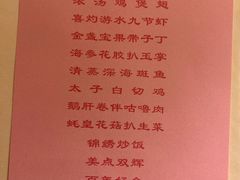 浓汤鸡煲翅
喜灼游水九节虾
金盏宝果带子丁
海参花胶扒玉掌
清蒸深海斑鱼
太子白切鸡
鹅肝卷伴咕噜肉
蚝皇花菇扒生菜
锦绣炒饭
美点双辉
百年好合